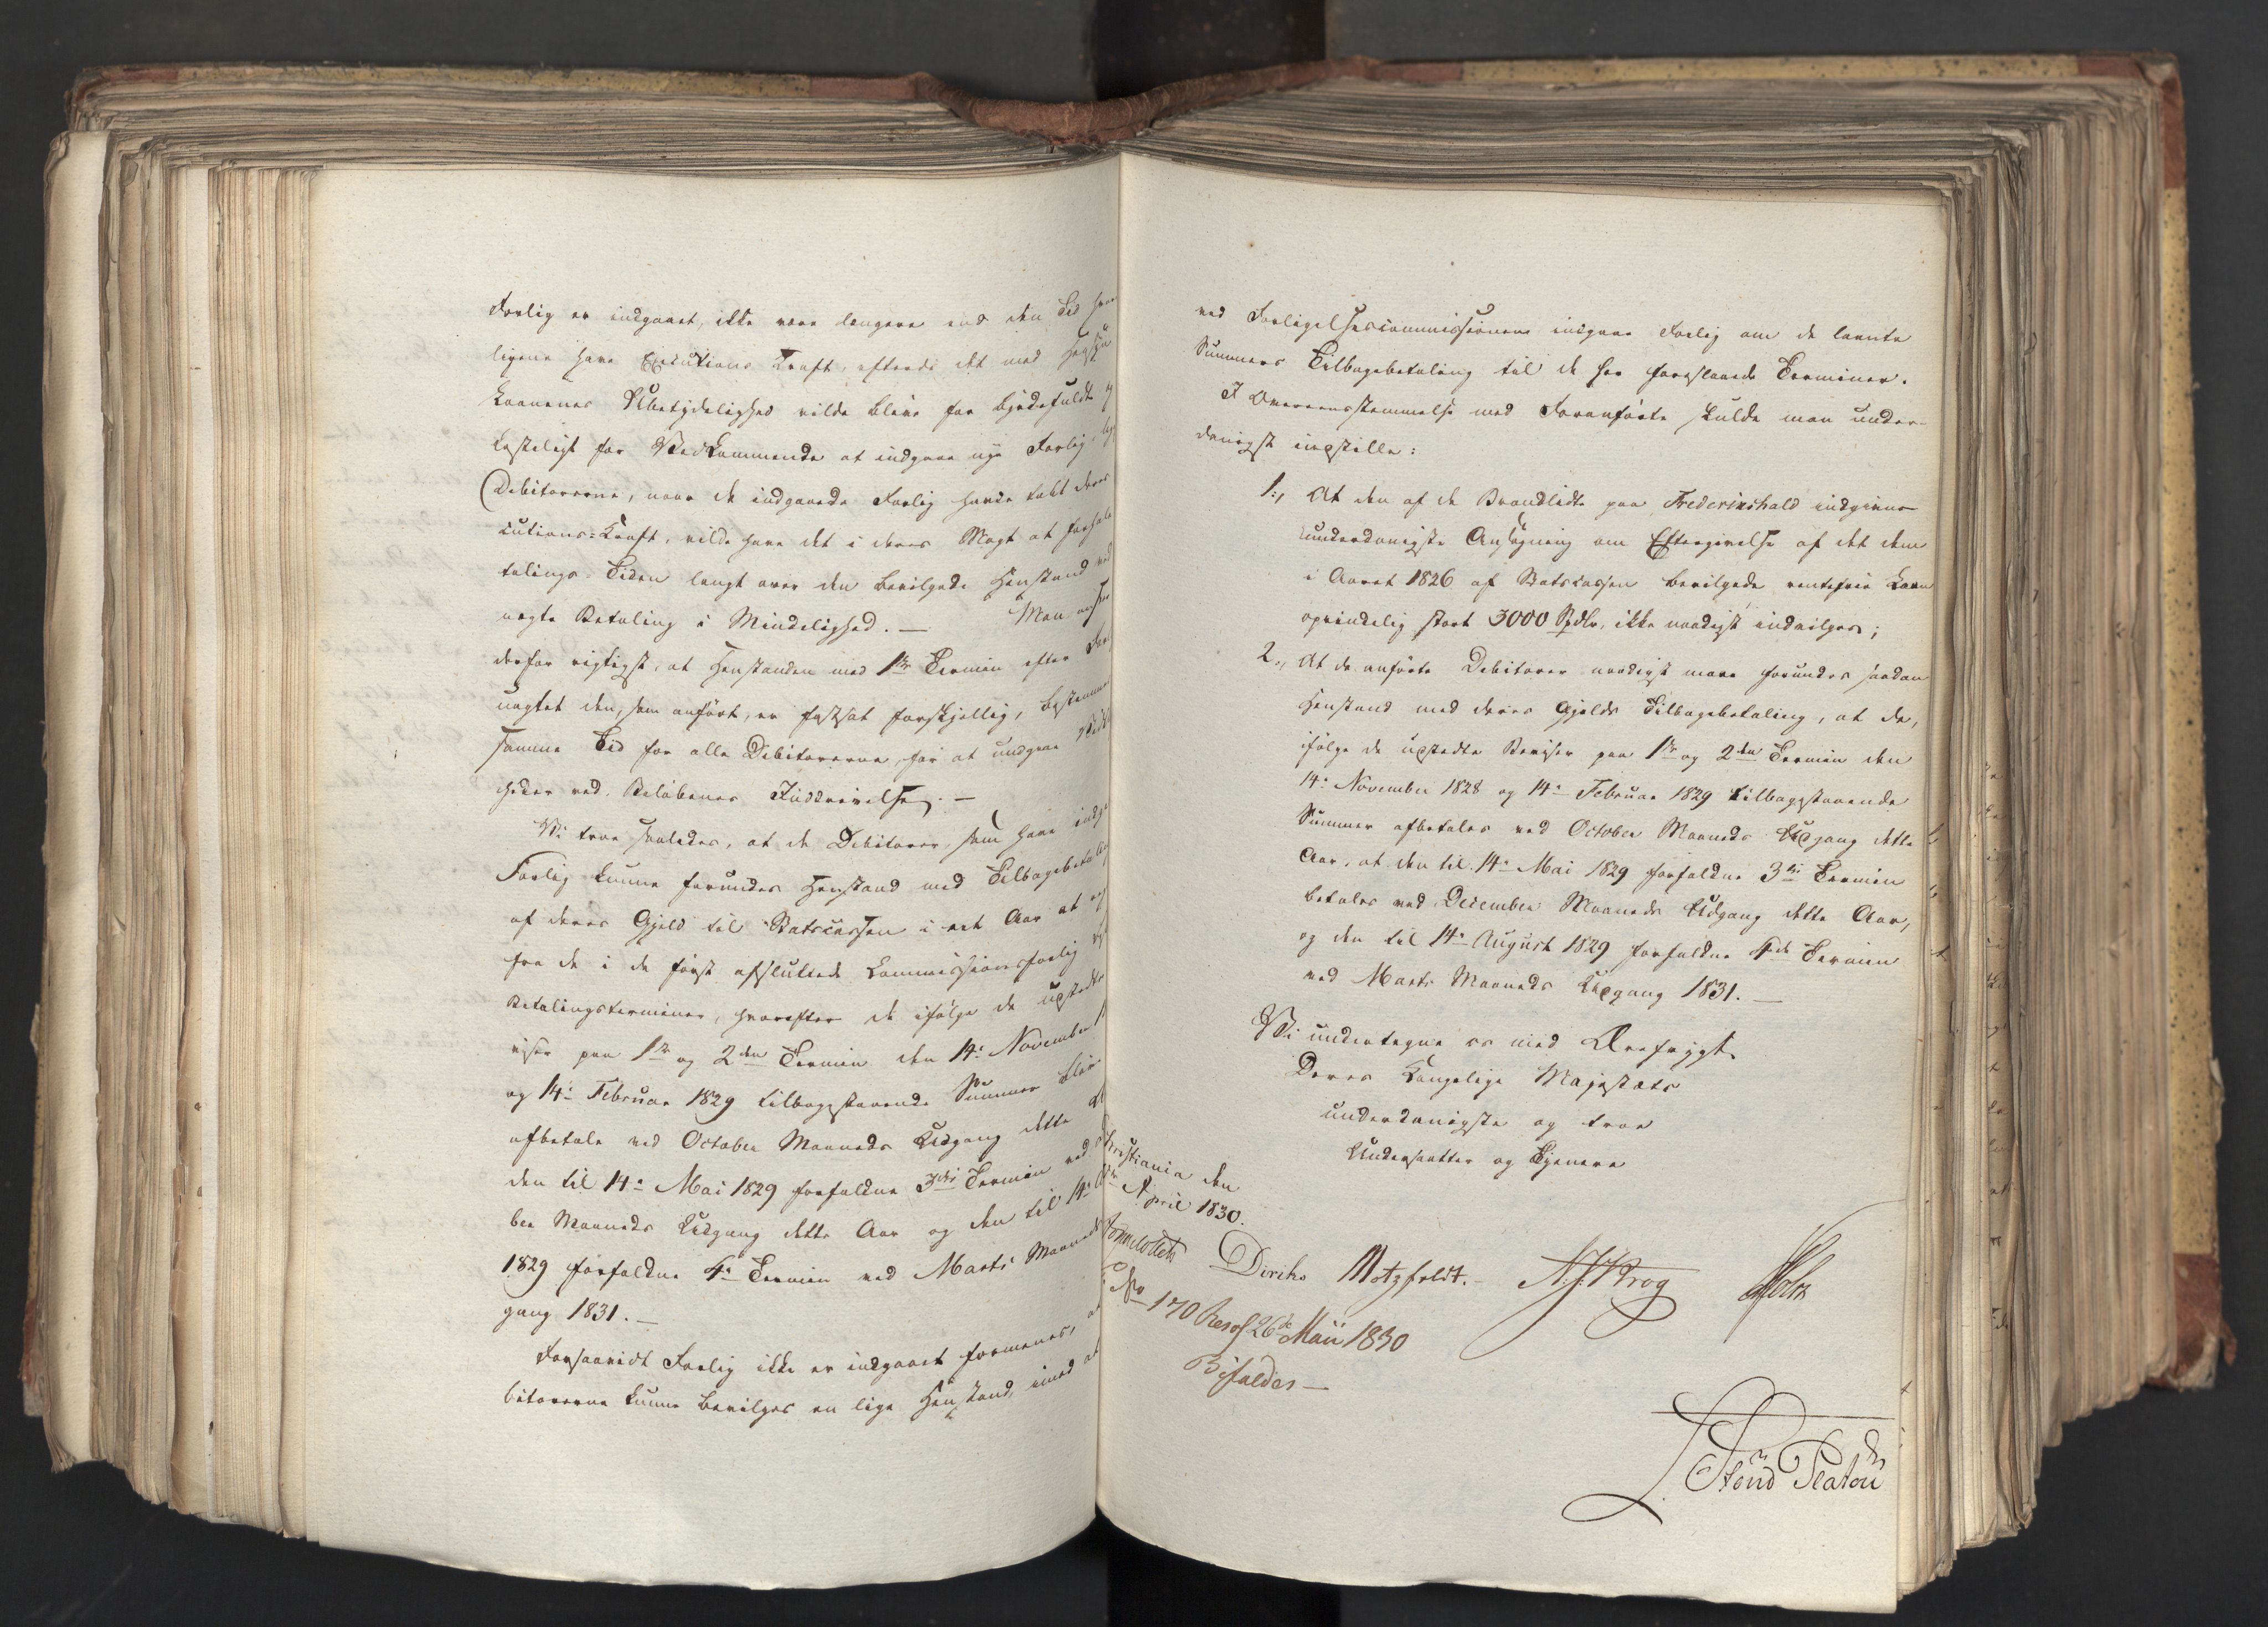 Forlig er indgaaet, ikke være længere end den Tid
ligene have Executions Kraft, efterdi det med
Laanenes Ubetydelighed vilde blive for byrdefuldt
kosteligt for Vedkommende at indgaae nye Forlig
Debitorerne, naar de indgaaede Forlig havde tabt deres
cutions-Kraft, vilde have det i deres Magt at forhale
talings-Tiden langt over den bevilgede Henstand ved
nægte Betaling i Mindelighed. — Man
derfor rigtigst, at Henstanden med 1ste Termin efter
uagtet den, som anført, er fastsat forskjellig, bestemmes
samme Tid for alle Debitorerne, for at undgaae
heder ved Beløbenes Inddrivelse. —
Vi troe saaledes, at de Debitorer, som have
Forlig kunne forundes Henstand med Tilbagebetaling
af deres Gjeld til Statscassen i eet Aar at
fra de i de først afsluttede Commissionsforlig
Betalingsterminer, hvorefter de ifølge de udstedte
viser paa 1ste og 2den Termin den 14de November
og 14de Februar 1829 tilbagestaaende Summer
afbetale ved October Maaneds Udgang dette
den til 14de Mai 1829 forfaldne 3die Termin ved
ber Maaneds Udgang dette Aar og den til 14de
1829 forfaldne 4de Termin ved Marts Maaneds
gang 1831. —
Forsaavidt Forlig ikke er indgaaet formenes,
bitorerne kunne bevilges en lige Henstand, imod at
ved Forligelsescommissionen indgaae Forlig om de laante
Summers Tilbagebetaling til de her foreslaaede Terminer.
I Overeensstemmelse med Foranførte skulde man under-
danigst indstille:
1., At den af de Brandlidte paa Frederikshald indgivne
underdanigste Ansøgning om Eftergivelse af det dem
i Aaret 1826 af Statscassen bevilgede rentefrie Laan
oprindelig stort 3000 Spdlr. ikke naadigst indvilges;
2., At de anførte Debitorer naadigst maae forundes saadan
Henstand med deres Gjelds Tilbagebetaling, at de,
ifølge de udstedte Beviser paa 1ste og 2den Termin den
14de November 1828 og 14de Februar 1829 tilbagestaaende
Summer afbetales ved October Maaneds Udgang dette
Aar, at den til 14de Mai 1829 forfaldne 3die Termin
betales ved December Maaneds Udgang dette Aar,
og den til 14de August 1829 forfaldne 4de Termin
ved Marts Maaneds Udgang 1831. —
Vi undertegne os med Ærefrygt
Deres Kongelige Majestæts
underdanigste og troe
Undersaatter og Tjenere
Christiania den
April 1830.
Diriks Motzfeldt. — N.J. Krog Holst
No 170 Resol 26de Maii 1830
Bifaldes —
L. Stoud Platou